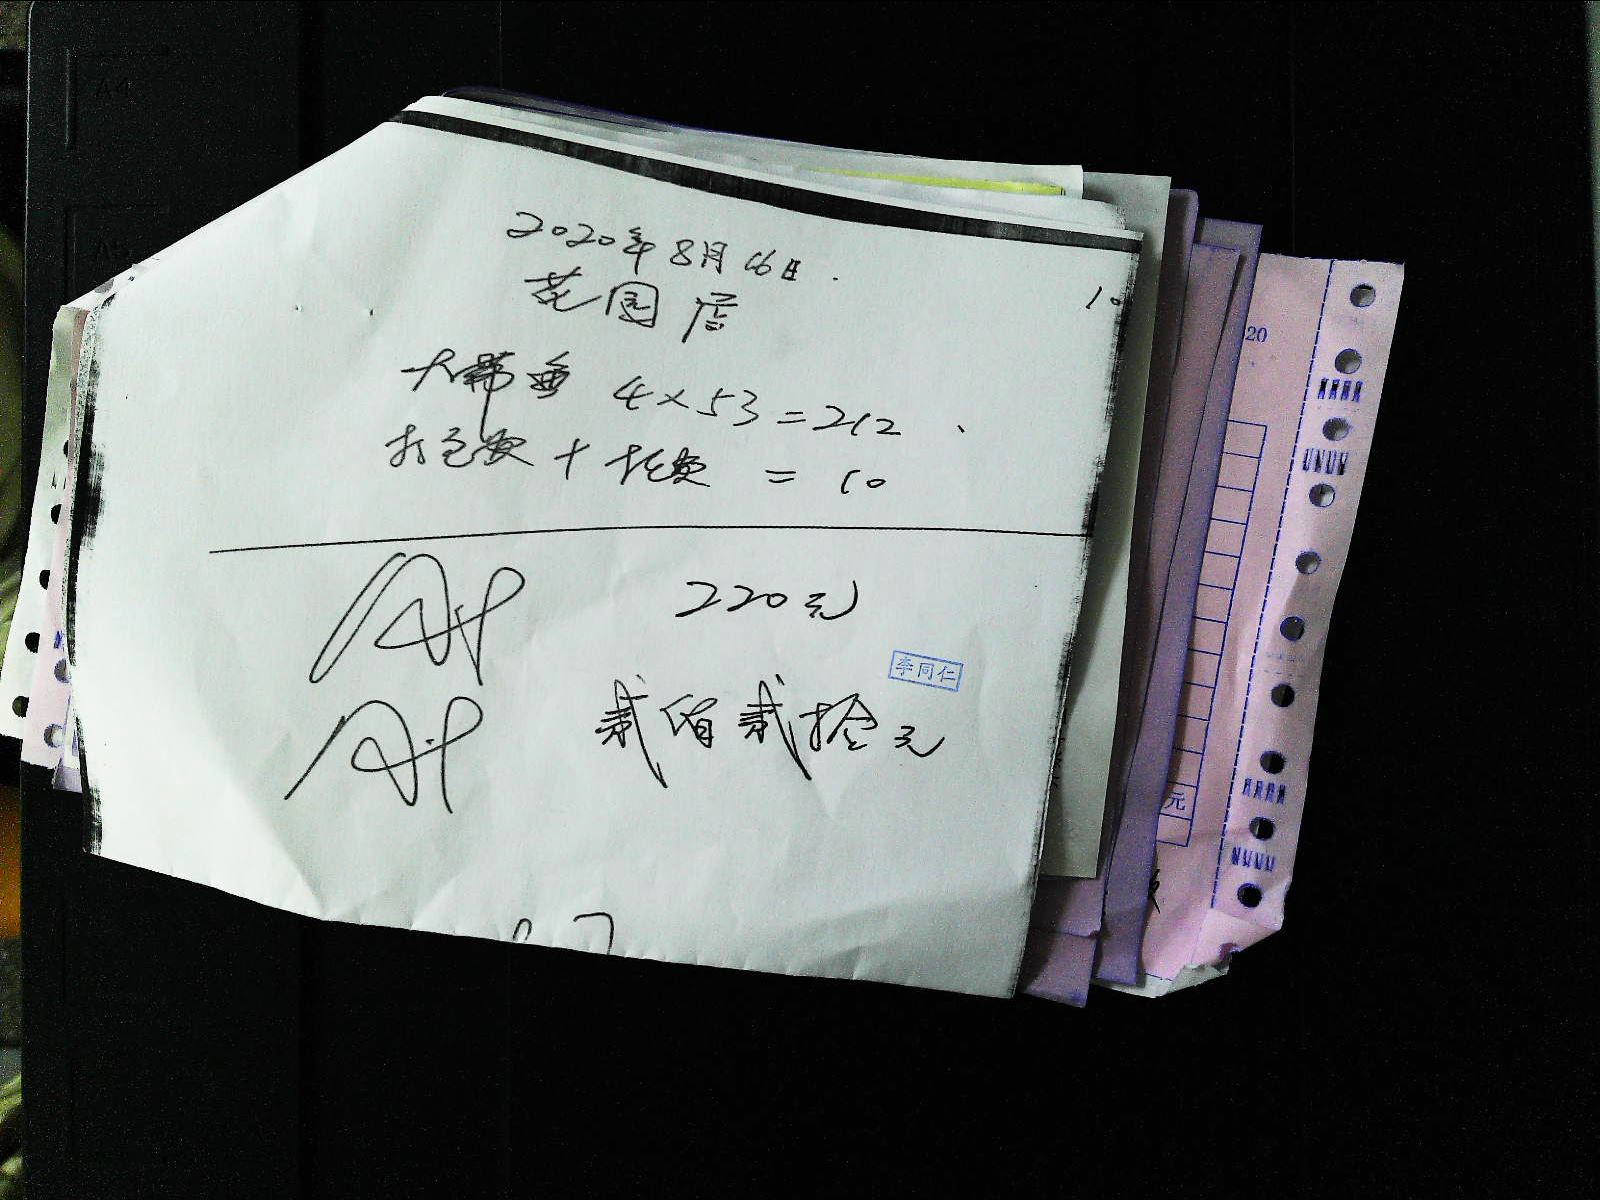 2020年8月16日.
花园店
10
大带鱼 4×53=212、
打包费+托运费 = 10
220元
李同仁
贰佰贰拾元
20
元
A4
A5